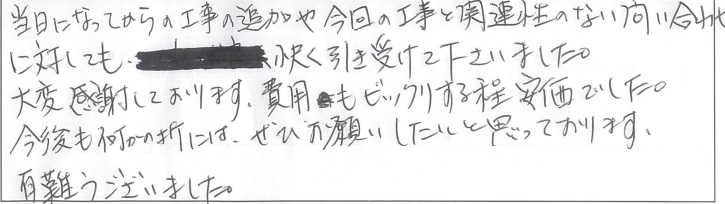 当日になってからの工事の追加や今回の工事と関連性のない問い合わせ
に対しても、快く引き受けて下さいました。
大変感謝しております。費用もビックリする程安価でした。
今後も何かの折には、ぜひお願いしたいと思っております。
有難うございました。